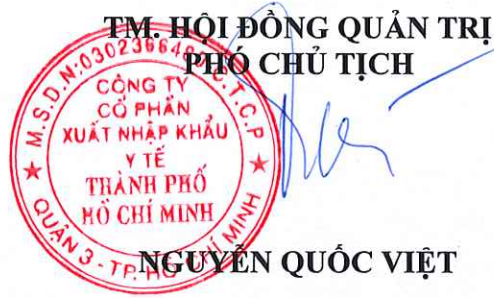 TM. HỘI ĐỒNG QUẢN TRỊ
PHÓ CHỦ TỊCH
M.S.D.N:0302366480-C.T.C.P
CÔNG TY
CỔ PHẦN
XUẤT NHẬP KHẨU
Y TẾ
THÀNH PHỐ
HỒ CHÍ MINH
QUẬN 3 - TP. HỒ CHÍ MINH
NGUYỄN QUỐC VIỆT